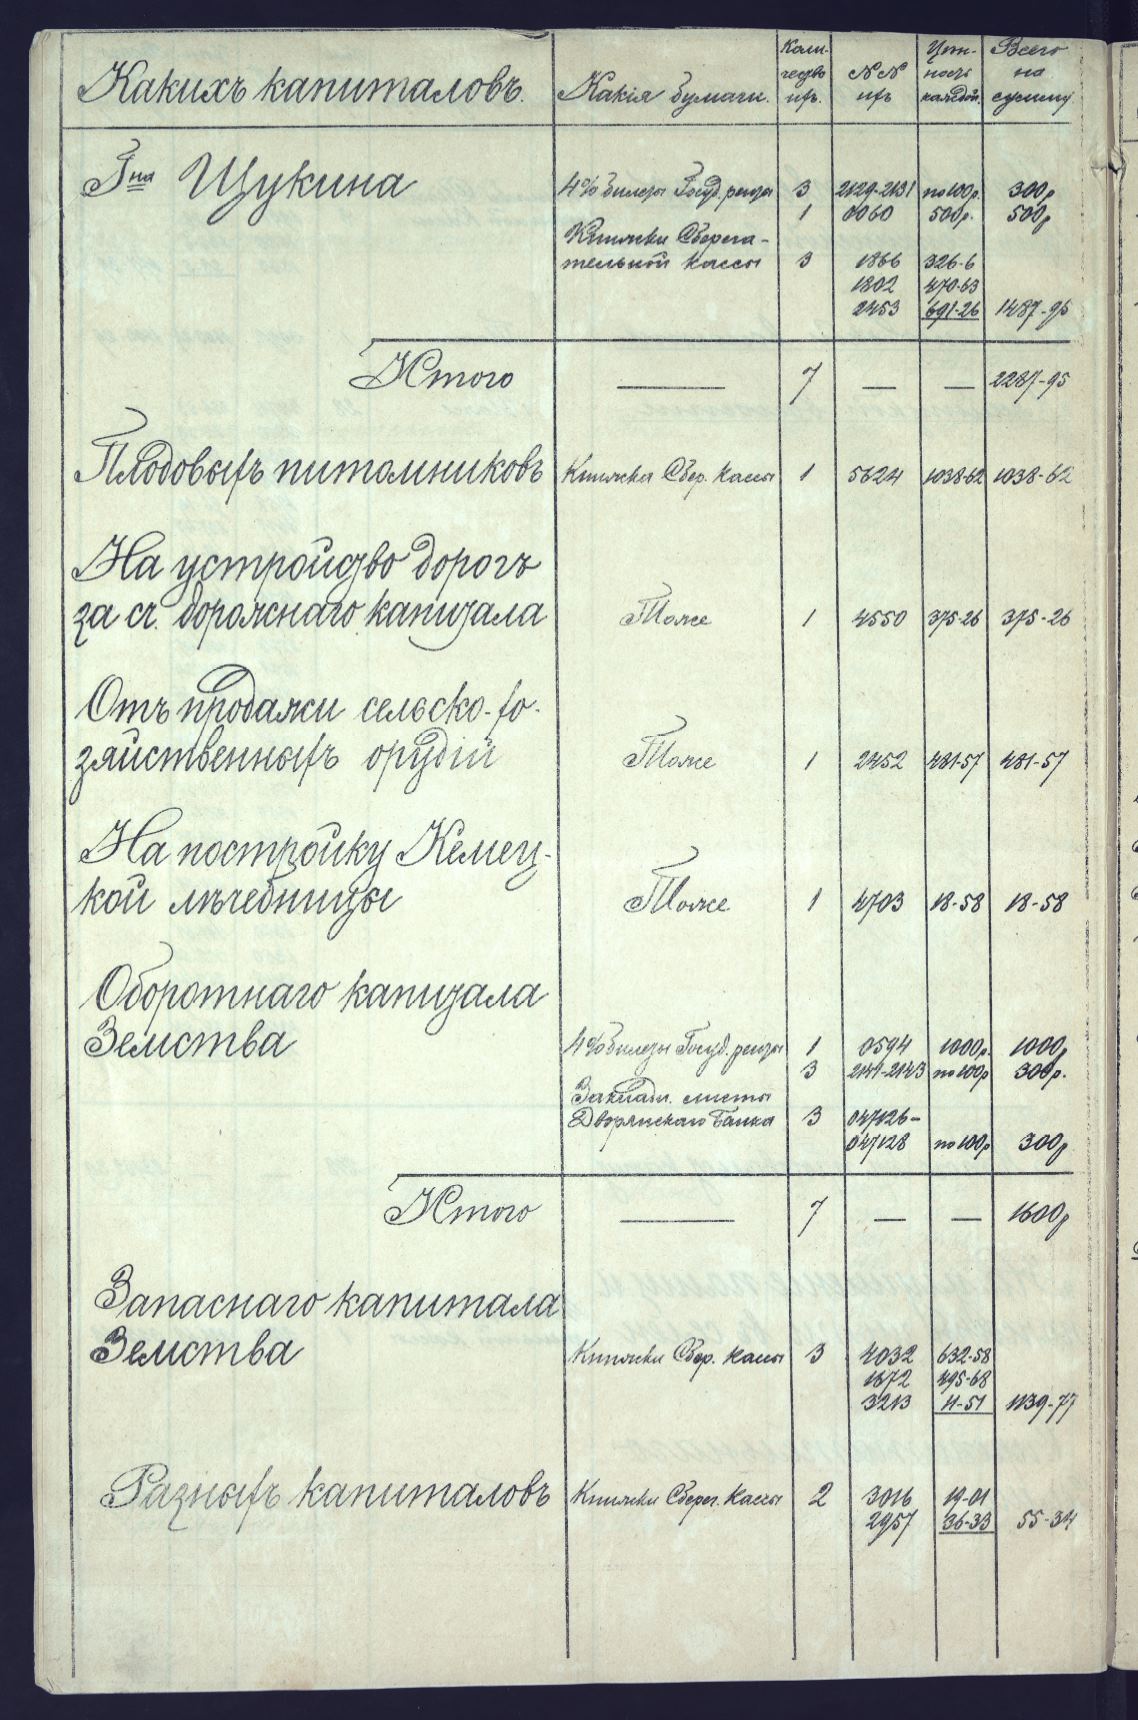 Какихъ капиталовъ. Какія бумаги. Количество ихъ. №№ ихъ Цѣнность каждой. Всего на сумму
Гна Щукина 4% билеты Госуд. ренты 3 2129-2131 по 100 р. 300 р
1 0060 500 р. 500 р
Книжки Сберега-
тельной кассы 3 1866 326-6
1802 470-63
2453 691-26 1487-95
Итого — 7 — — 2287-95
Плодовыхъ питомниковъ Книжка Сбер. кассы 1 5624 1038-62 1038-62
На устройство дорогъ
за сч. дорожнаго капитала Тоже 1 4550 375-26 375-26
Отъ продажи сельско-хо-
зяйственныхъ орудій Тоже 1 2452 481-57 481-57
На постройку Кемец-
кой лѣчебницы Тоже 1 4703 18-58 18-58
Оборотнаго капитала
Земства 4% билеты Госуд. ренты 1 0594 1000 р. 1000 р
3 2141-2143 по 100 р 300 р.
Закладн. листы
Дворянскаго Банка 3 047126-
047128 по 100 р 300 р
Итого — 7 — — 1600 р
Запаснаго капитала
Земства Книжки Сбер. кассы 3 4032 632-58
1672 495-68
3213 11-51 1139-77
Разныхъ капиталовъ Книжки Сберег. Кассы 2 3016 19-01
2957 36-33 55-34